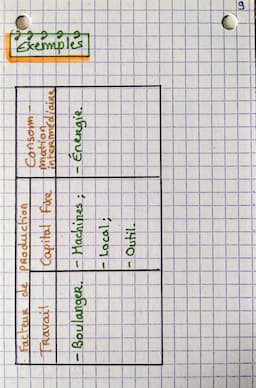 9
Exemples
Facteur de production
Consom-
mation
intermédiaires
Travail
Capital Fixe
- Boulanger.
- Machines ;
- Local ;
- Outil.
- Énergie.